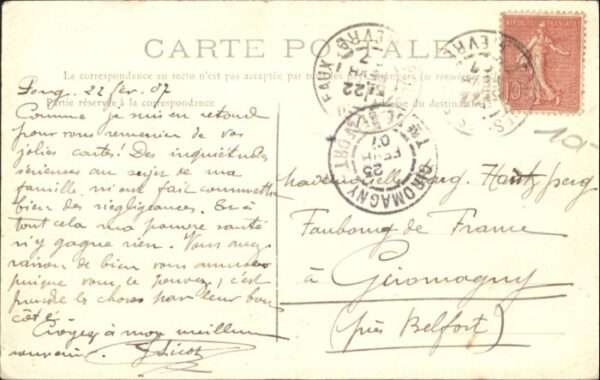 CARTE POSTALE
La correspondance au recto n'est pas acceptée par tous les pays étrangers (se renseigner
Partie réservée à la correspondance
du destinataire
REPUBLIQUE FRANÇAISE
10
POSTES
22 fév. 07
Comme je suis en retard
pour vous remercier de vos
jolies cartes! Des inquiétudes
sérieuses au sujet de ma
famille m'ont fait commettre
bien des négligences. Et à
tout cela ma pauvre santé
n'y gagne rien. Vous avez
raison de bien vous amuser
puisque vous le pouvez, c'est
prendre les choses par leur bon
côté.
Croyez à mon meilleur
souvenir.
Faubourg de France
à Giromagny
(près Belfort)
GIROMAGNY
23
FEVR
07